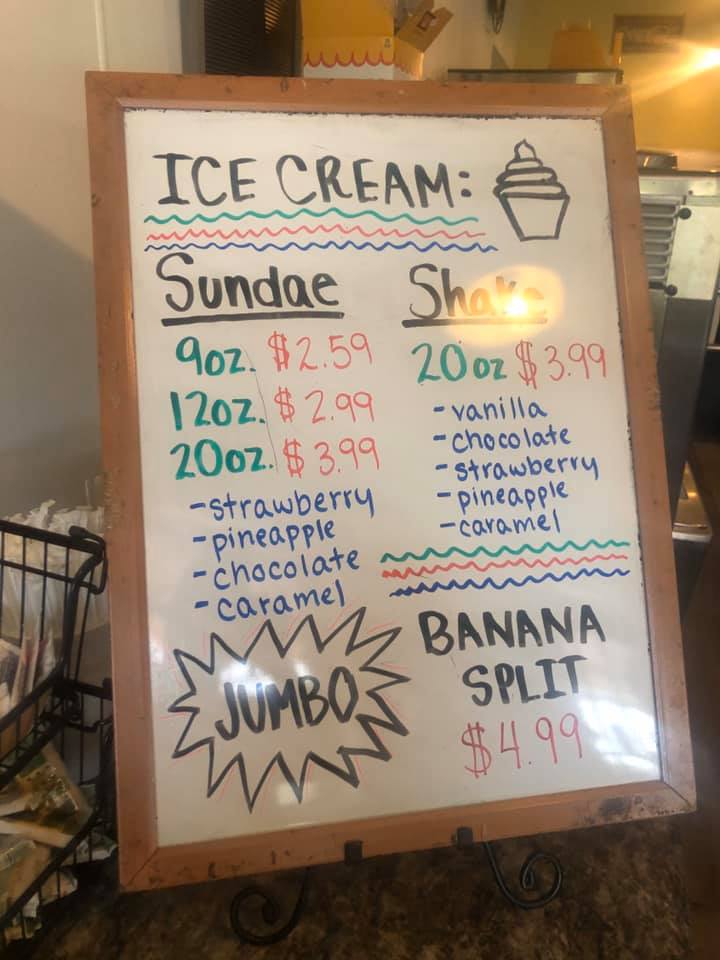 ICE CREAM:
Sundae
9oz. $2.59
12oz. $2.99
20oz. $3.99
-strawberry
-pineapple
-chocolate
-caramel
Shake
20oz $3.99
-vanilla
-chocolate
-strawberry
-pineapple
-caramel
JUMBO
BANANA
SPLIT
$4.99